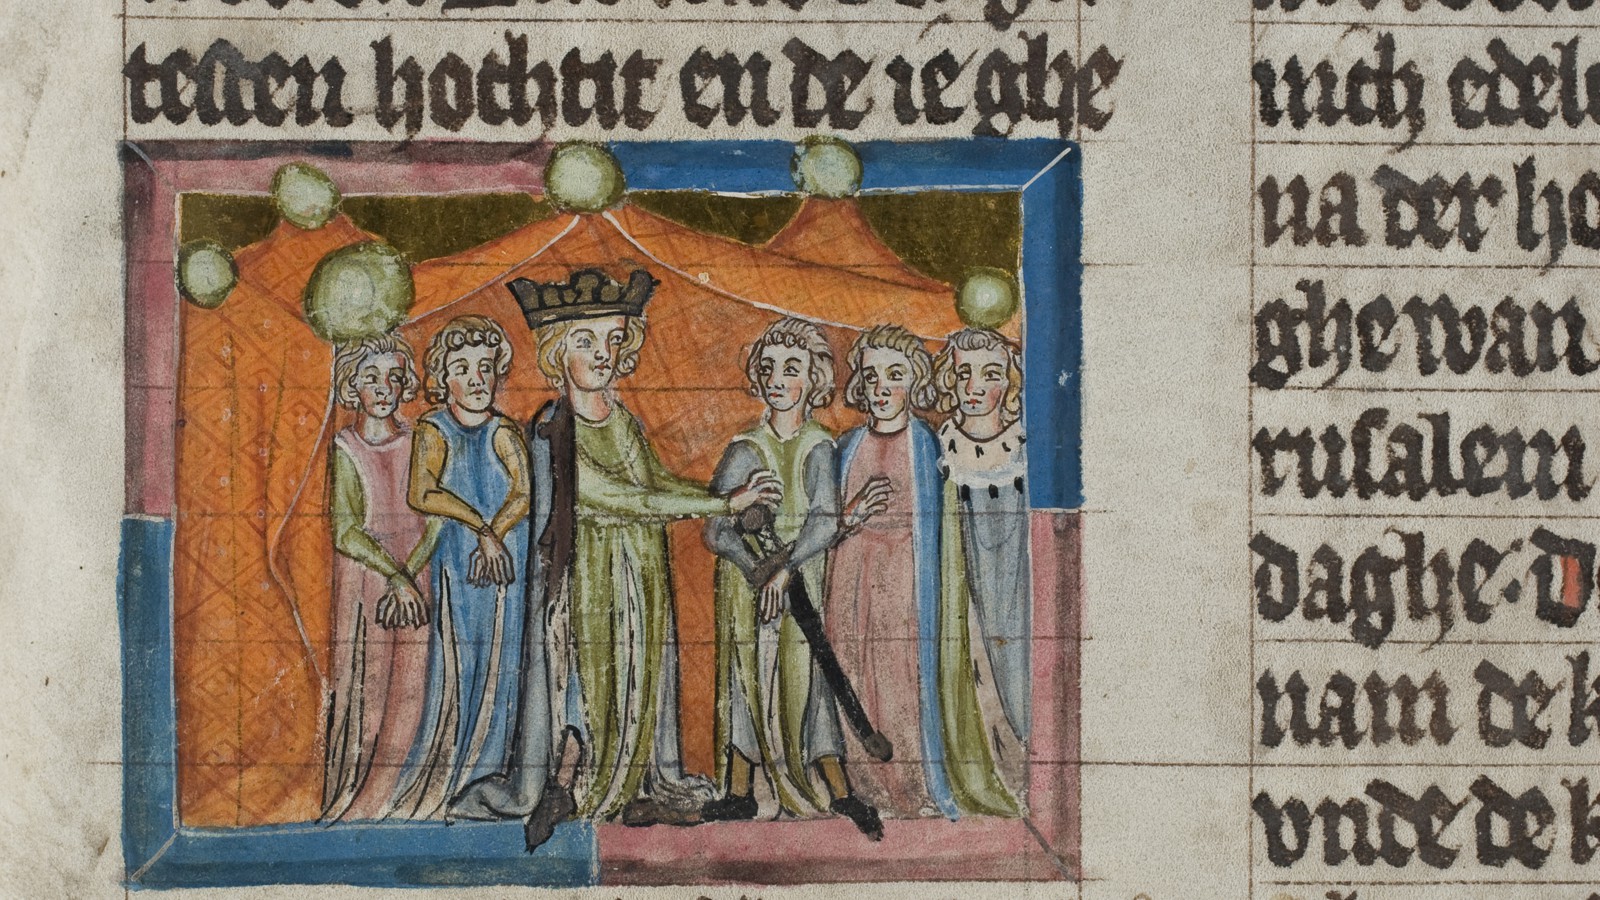 testen hochtit en de ie ghe
nich edel
na der ho
ghewan
rusalem
daghe · D
nam de k
vnde de k